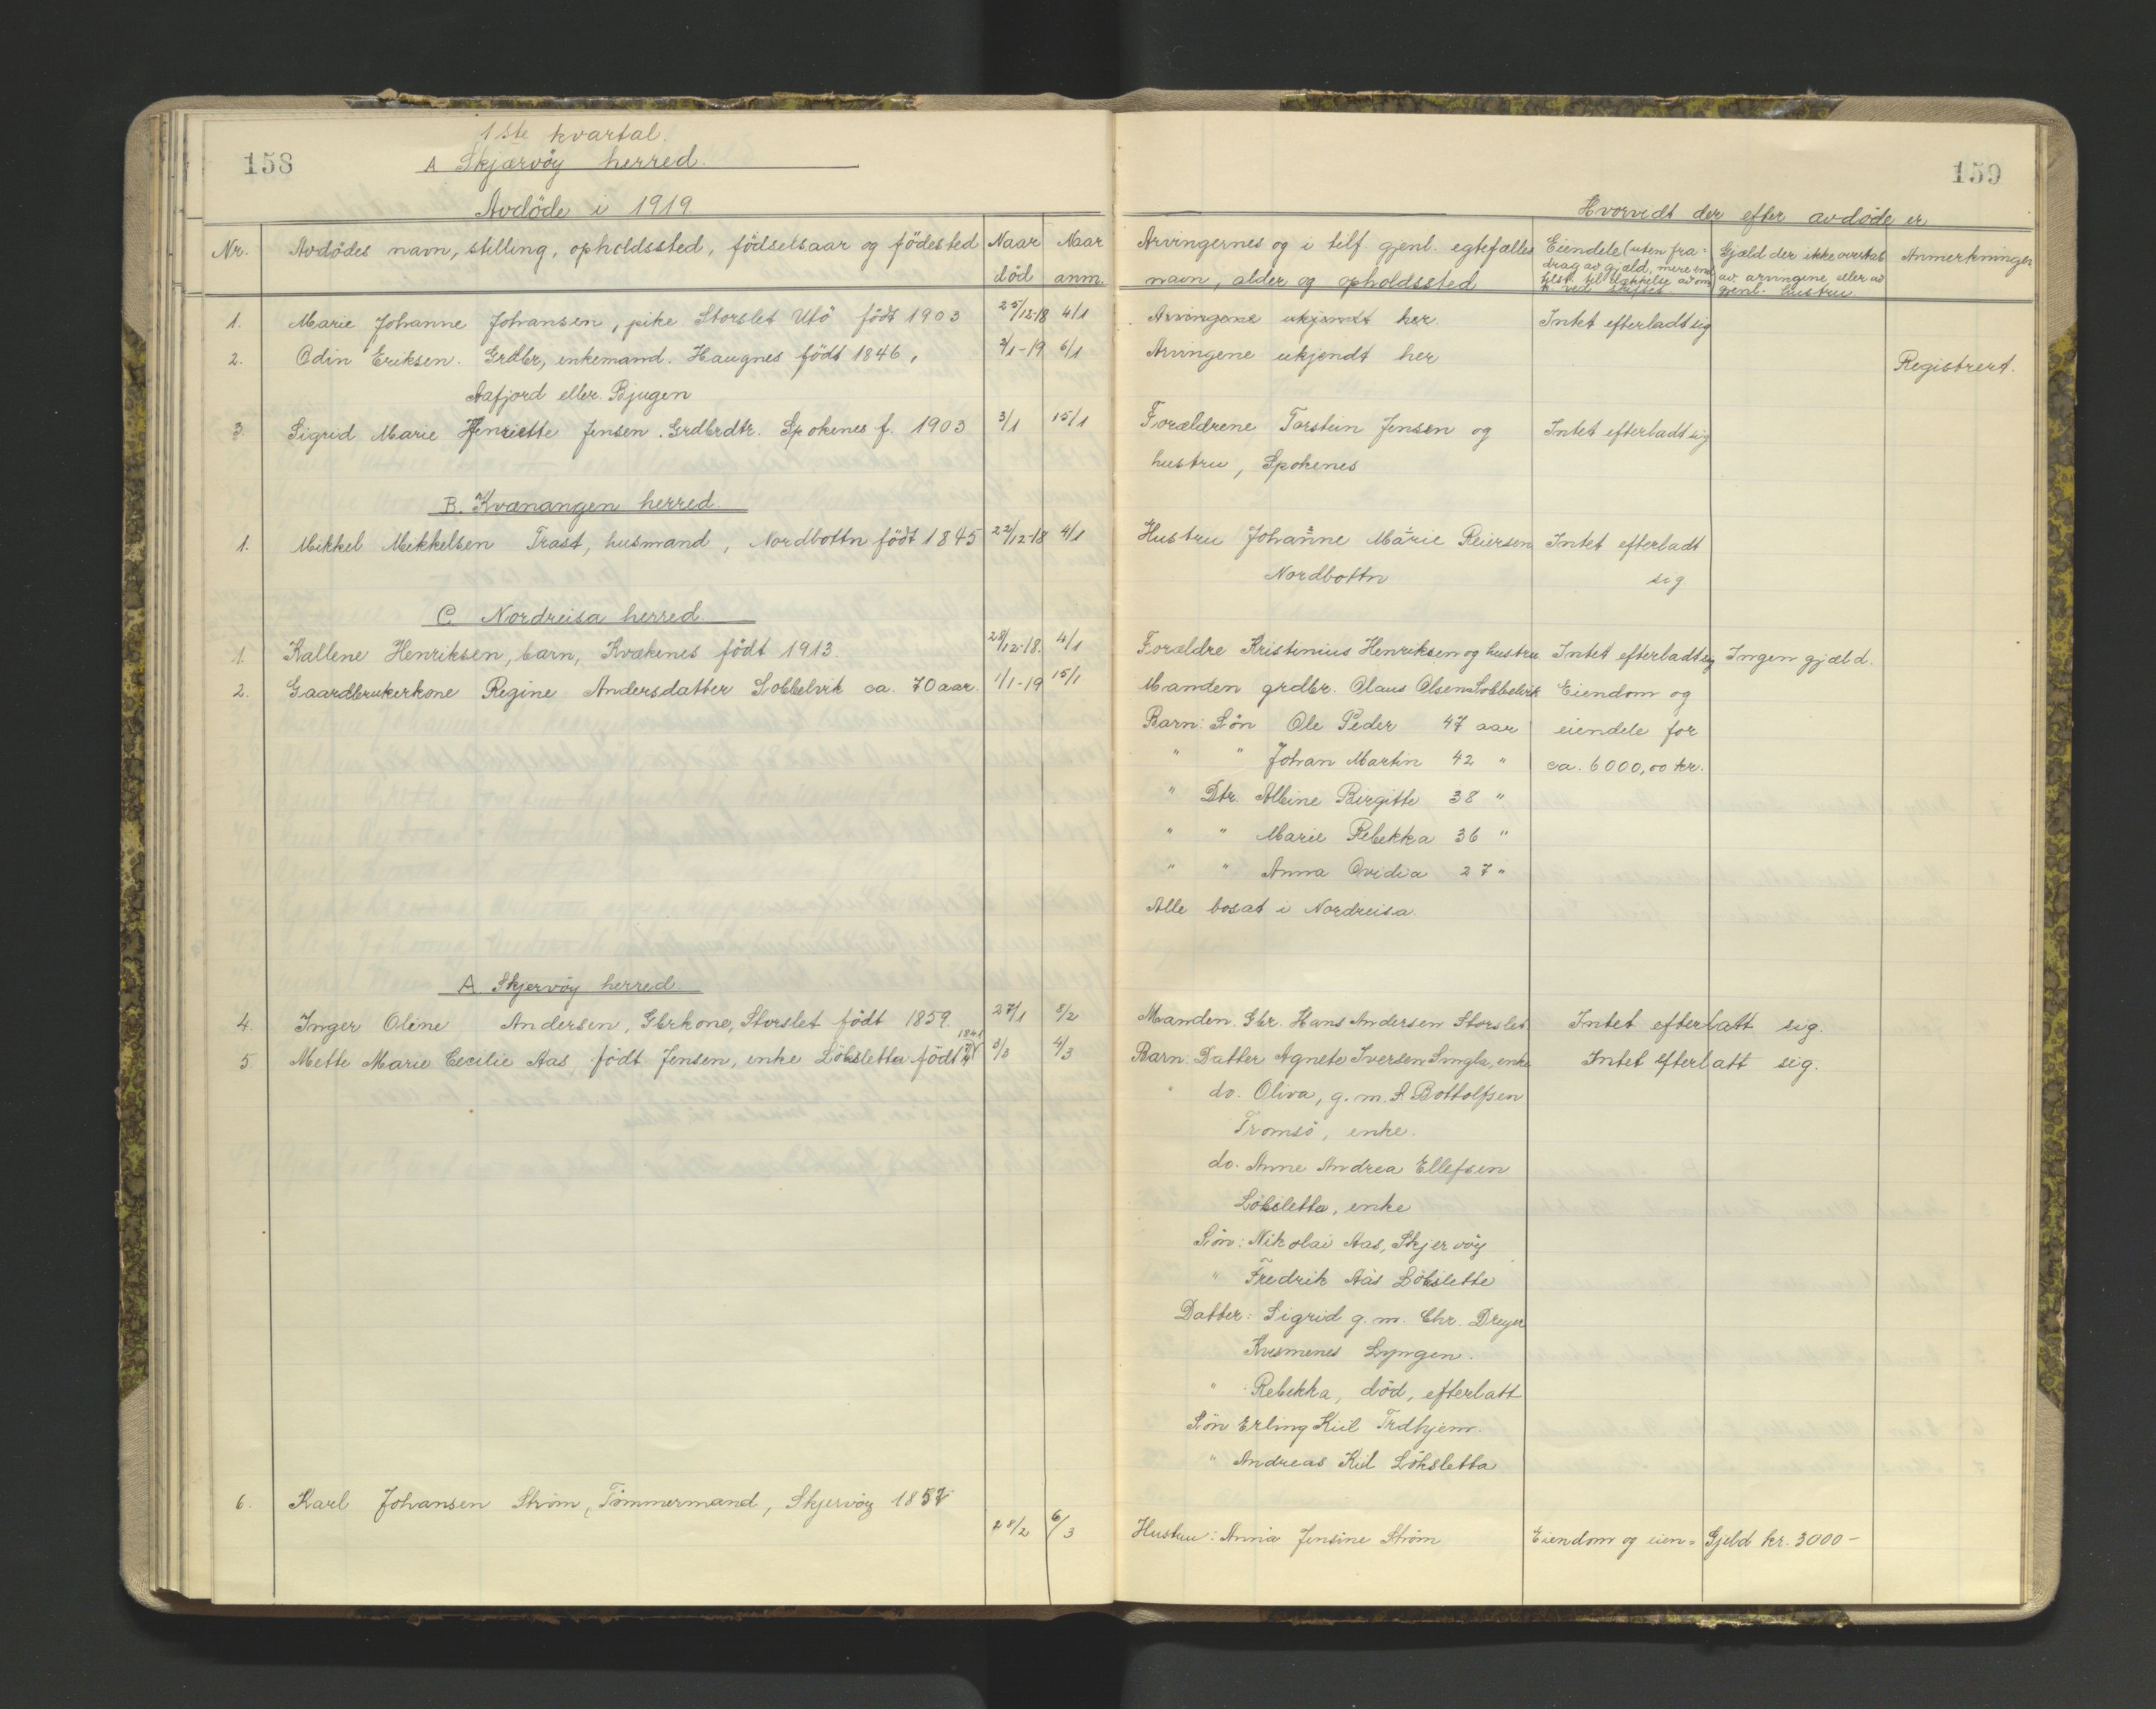 1ste kvartal.
158
A Skjærvöy herred.
Avdöde i 1919
Nr.
Avdödes navn, stilling, opholdssted, födselsaar og födested
Naar död
Naar anm.
1. Marie Johanne Johansen, pike Storslet Utö födt 1903 25/12-18 4/1
2. Odin Eriksen. Grdbr, enkemand. Haugnes födt 1846, 2/1-19 6/1
Aafjord eller Bjugen
3. Sigrid Marie Henriette Jensen. Grdbrdtr. Spokenes f. 1903 3/1 15/1
B. Kvænangen herred.
1. Mikkel Mikkelsen Trast, husmand, Nordbottn födt 1845 22/12-18 4/1
C. Nordreisa herred.
1. Kallene Henriksen, barn, Kvækenes födt 1913. 28/12-18. 4/1
2. Gaardbrukerkone Regine Andersdatter Sobbelvik ca. 70 aar. 1/1-19 15/1
A Skjervöy herred.
4. Inger Oline Andersen, Gbrkone, Storslet födt 1859. 27/1 8/2
5. Mette Marie Cecilie Aas, födt Jensen, enke Löksletta födt 1841 3/3 4/3
6. Karl Johansen Ström, Tömmermand, Skjervöy 1857
28/2 6/3
159
Hvorvidt der efter avdöde er
Arvingernes og i tilf. gjenl. egtefælles
navn, alder og opholdssted
Eiendele (uten fra-
drag av gjæld, mere end
tilst. til dækkelse av om
k. ved skiftes
Gjæld der ikke overtas
av arvingene eller av
gjenl. hustru
Anmerkninger
Arvingene ukjendt her. Intet efterladt sig
Arvingene ukjendt her
Registrert.
Forældrene Torstein Jensen og Intet efterladt sig
hustru, Spokenes
Hustru Johanne Marie Reiersen Intet efterladt
Nordbottn sig
Forældre Kristinius Henriksen og hustru Intet efterladt sig Ingen gjæld.
Manden grdbr. Olaus Olsen Sobbelvik Eiendom og
Barn: Sön Ole Peder 47 aar eiendele for
" " Johan Martin 42 " ca. 6000,00 kr.
" Dtr. Albine Birgitte 38 "
" " Marie Rebekka 36 "
" " Anna Ovidia 27 "
Alle bosat i Nordreisa.
Manden. Gbr. Hans Andersen Storslet Intet efterlatt sig.
Barn: Datter Agnete Iversen Singla, enke Intet efterlatt sig.
" do. Oliva, g. m. S. Bottolfsen
Tromsö, enke.
do. Anne Andrea Ellefsen
Löksletta, enke
Sön: Nikolai Aas, Skjervöy
" Fredrik Aas Lökslette
Datter: Sigrid g. m. Chr. Dreyer
Kvesmenes Lyngen.
" Rebekka, död, efterlatt
Sön Erling Kiil Trdhjem.
" Andreas Kiil Lökslette
Hustru: Anna Jensine Ström Eiendom og eien- Gjeld kr. 3000-